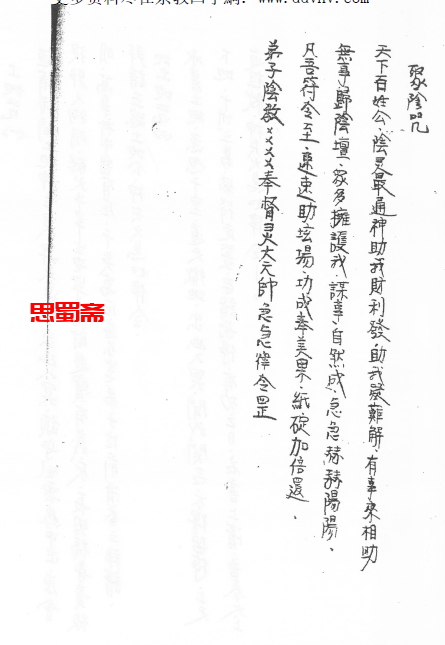 更多资料尽在宗教四字網: www.ddvnv.com
聚陰咒
天下百姓公、陰灵最通神助我財利發、助我疑難解、有事來相助
無事歸陰壇、眾多擁護我、謀事自然成、急急赫赫陽陽、
凡吾符令至、速速助坛場、功成奉美果、紙錠加倍還、
弟子陰教××××奉督灵大元帥急急律令罡
思蜀斋